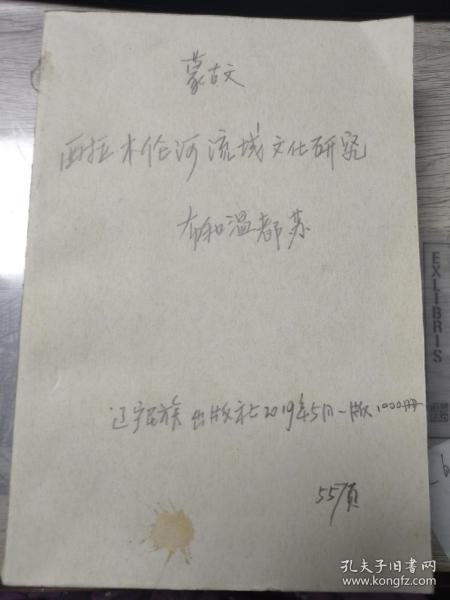 蒙古文
西拉木伦河流域文化研究
布和温都苏
辽宁民族出版社2019年5月一版1000册
557页
EXLIBRIS
孔夫子旧书网
www.kongfz.com